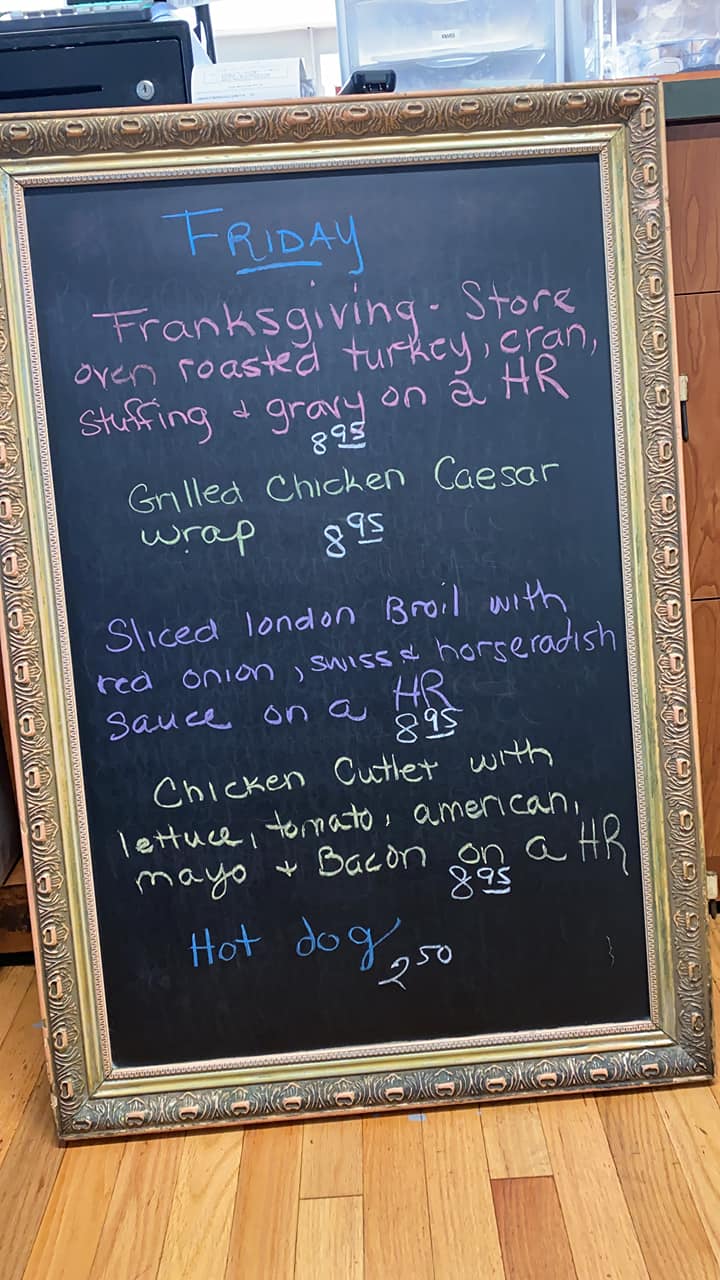 FRIDAY
Franksgiving - Store
oven roasted turkey, cran,
stuffing & gravy on a HR
8 95
Grilled Chicken Caesar
wrap 8 95
Sliced london Broil with
red onion, swiss & horseradish
sauce on a HR
8 95
Chicken Cutlet with
lettuce, tomato, american,
mayo + Bacon on a HR
8 95
Hot dog 2 50